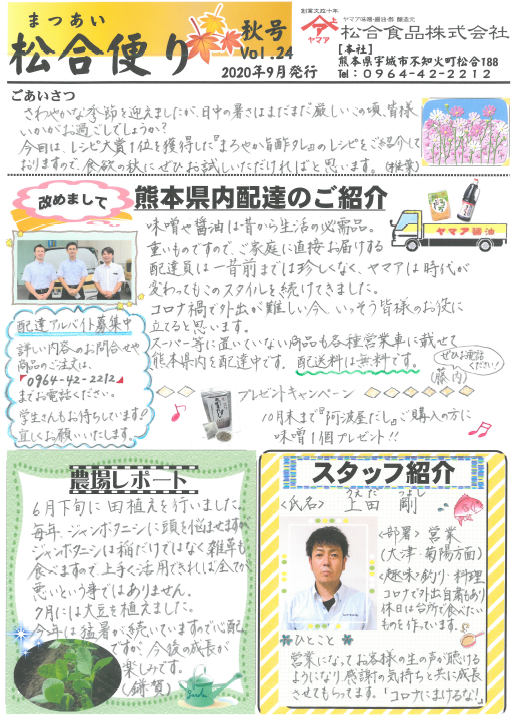 まつあい
松合便り
秋号
Vol.24
2020年9月発行
創業文政十年
ヤマア味噌・醤油・酢 醸造元
上
ア
ヤマア
松合食品株式会社
[本社]
熊本県宇城市不知火町松合188
Tel：0964-42-2212
ごあいさつ
さわやかな季節を迎えましたが、日中の暑さはまだまだ厳しいこの頃、皆様
いかがお過ごしでしょうか？
今回は、レシピ大賞1位を獲得した『まろやか旨酢タレ』のレシピをご紹介して
おりますので、食欲の秋にぜひお試しいただければと思います。(椎葉)
改めまして
熊本県内配達のご紹介
味噌や醤油は昔から生活の必需品。
重いものですので、ご家庭に直接お届けする
配達員は一昔前までは珍しくなく、ヤマアは時代が
変わってもこのスタイルを続けてきました。
コロナ禍で外出が難しい今、いっそう皆様のお役に
立てると思います。
スーパー等に置いていない商品も各種営業車に載せて
熊本県内を配達中です。配送料は無料です。
ぜひお電話
ください！
(藤内)
ヤマア醤油
配達アルバイト募集中
詳しい内容のお問合せや
商品のご注文は、
「0964-42-2212」
までお電話ください。
学生さんもお待ちしています！
宜しくお願いいたします。
プレゼントキャンペーン
10月末まで『阿波屋だし』ご購入の方に
味噌1個プレゼント!!
農場レポート
6月下旬に田植えを行いました。
毎年、ジャンボタニシに頭を悩ませますが、
ジャンボタニシは稲だけではなく雑草も
食べますので上手く活用できれば全てが
悪いという事ではありません。
7月には大豆を植えました。
今年は猛暑が続いていますので心配
ですが、今後の成長が
楽しみです。
(鎌賀)
スタッフ紹介
<氏名>
うえだ つよし
上田 剛
<部署> 営業
(大津・菊陽方面)
<趣味> 釣り・料理
コロナで外出自粛もあり
休日は台所で食べたい
ものを作っています。
ひとこと
営業になってお客様の生の声が聴ける
ようになり感謝の気持ちと共に成長
させてもらってます。「コロナにまけるな!」